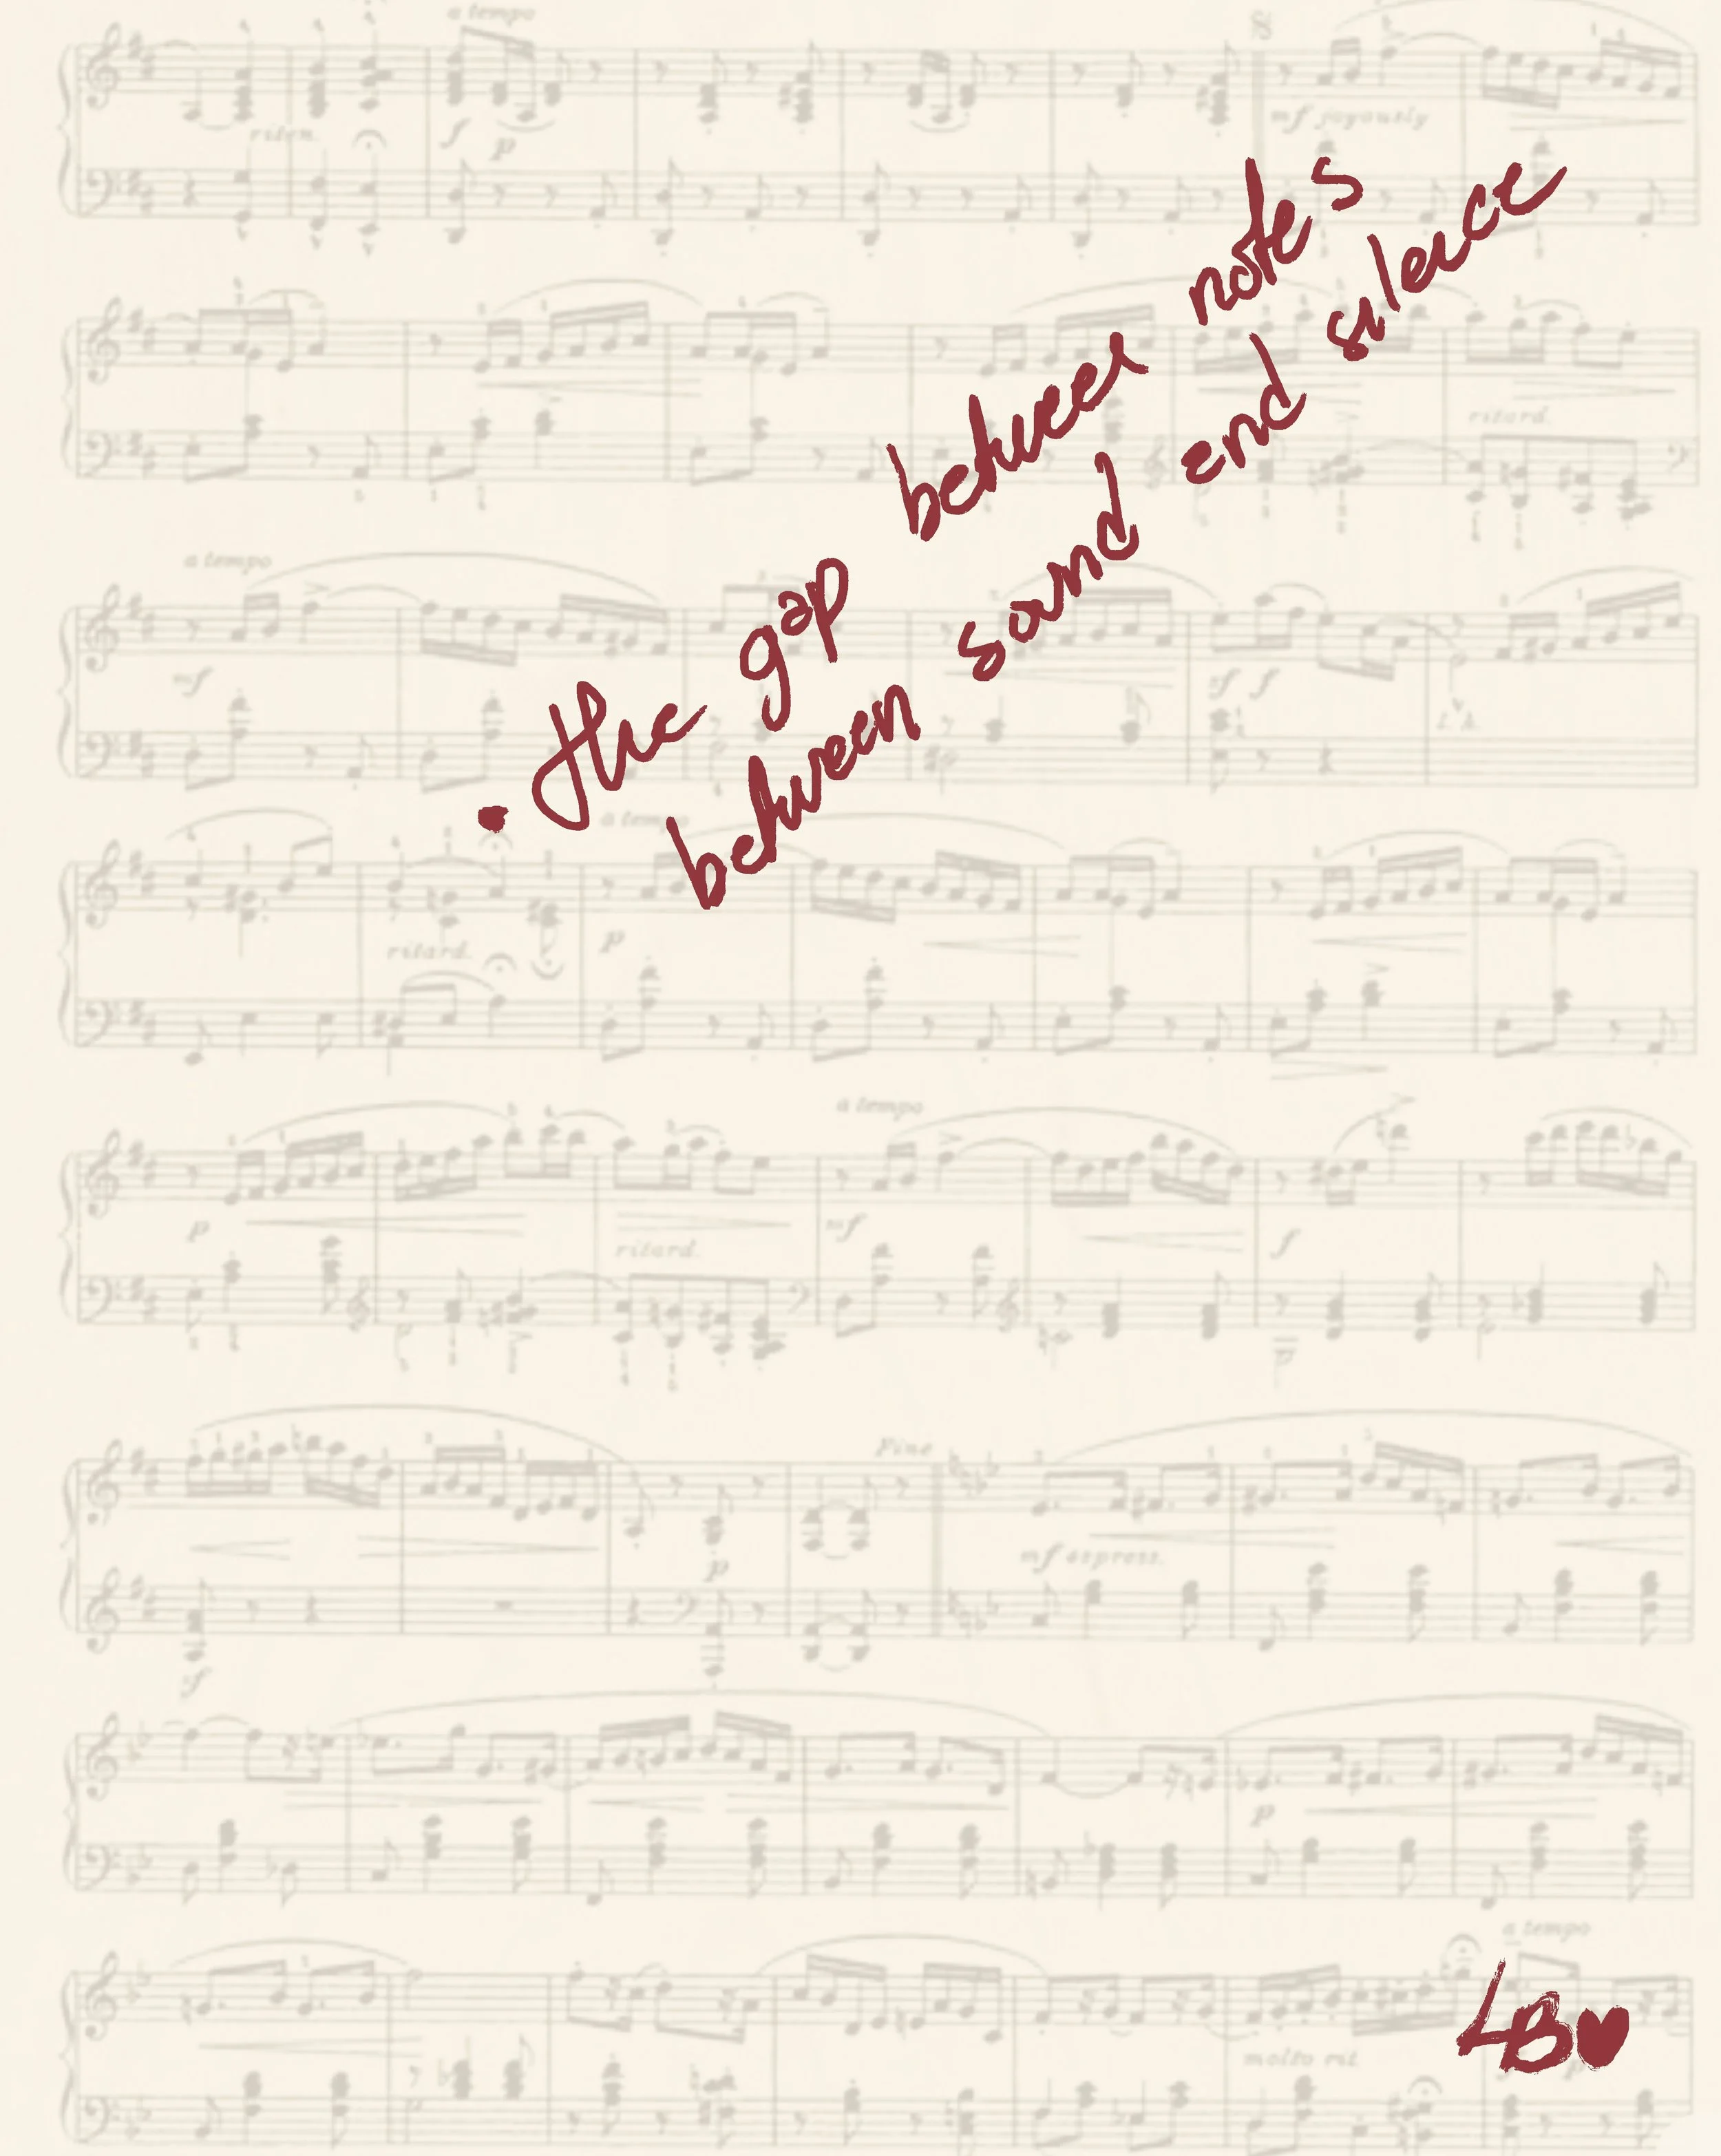 a tempo
riten.
f
p
mf joyously
ritard.
a tempo
mf
sf f
a tempo
ritard.
p
a tempo
p
ritard.
mf
f
Fine
mf espress.
p
sf
p
a tempo
molto rit.
p
• the gap between notes
between sound and silence
LB♥